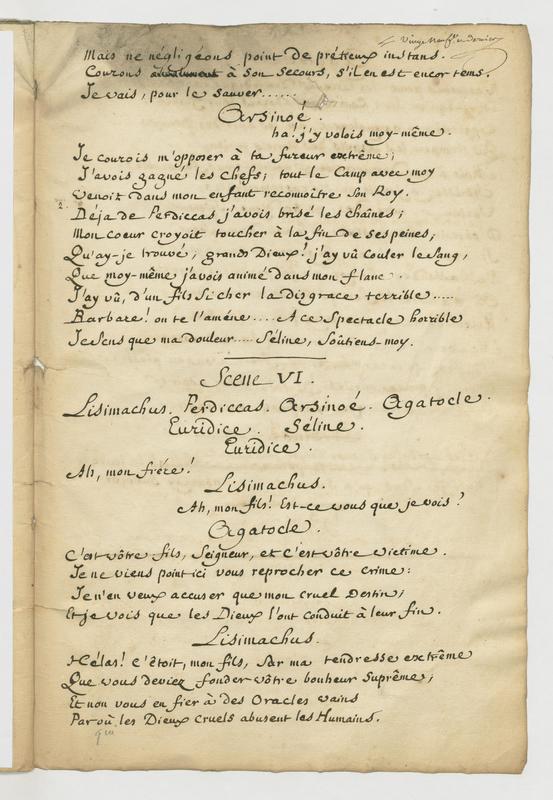 Vingt neufe. et dernier
Mais ne négligeons point de prétieux instans.
Courons à son secours, s'il en est encor tems.
Je vais, pour le sauver......
Arsinoé.
ha! j'y volois moy-même.
Je courois m'opposer à ta fureur extrême;
J'avois gagné les Chefs; tout le Camp avec moy
Venoit dans mon enfant reconnoître son Roy.
2. Déja de Perdiccas j'avois brisé les chaînes;
Mon coeur croyoit toucher à la fin de ses peines;
Qu'ay-je trouvé, grands Dieux! j'ay vû couler le sang,
Que moy-même j'avois animé dans mon flanc.
J'ay vû, d'un fils si cher la disgrace terrible.....
Barbare! on te l'améne.... A ce spectacle horrible
Je sens que ma douleur.... Séline, soûtiens-moy.
Scene VI.
Lisimachus. Perdiccas. Arsinoé. Agatocle.
Euridice. Séline.
Euridice.
Ah, mon frére!
Lisimachus.
Ah, mon fils! Est-ce vous que je vois?
Agatocle.
C'est vôtre fils, Seigneur, et c'est vôtre victime.
Je ne viens point ici vous reprocher ce crime:
Je n'en veux accuser que mon cruel Destin;
Et je vois que les Dieux l'ont conduit à leur fin.
Lisimachus.
Hélas! c'étoit, mon fils, sur ma tendresse extrême
Que vous deviez fonder vôtre bonheur suprême;
Et non vous en fier à des Oracles vains
Par où les Dieux cruels abusent les Humains.